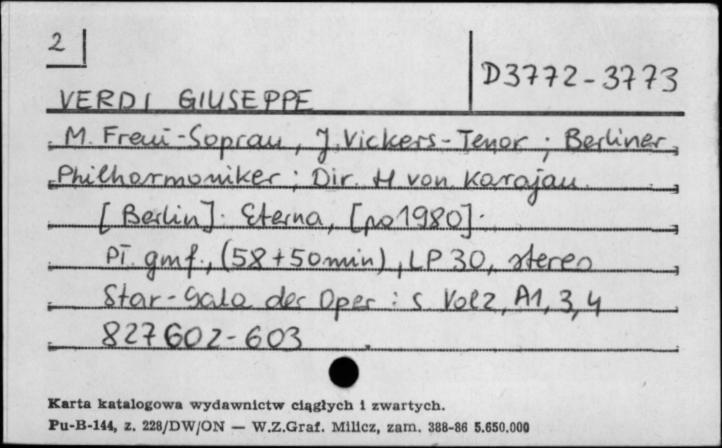 2
D3772-3773
VERDI GIUSEPPE
M. Freui-Soprau, J. Vickers-Tenor; Berliner
Philharmoniker; Dir. H von Karajau
[Berlin]: Eterna, [po 1980].
Pł. gmf., (58+50min), LP 30, stereo
Star-Gala der Oper: S. Vol 2, A1, 3, 4
827602-603
Karta katalogowa wydawnictw ciągłych i zwartych.
Pu-B-144, z. 228/DW/ON — W.Z.Graf. Milicz, zam. 388-86 5.650.000